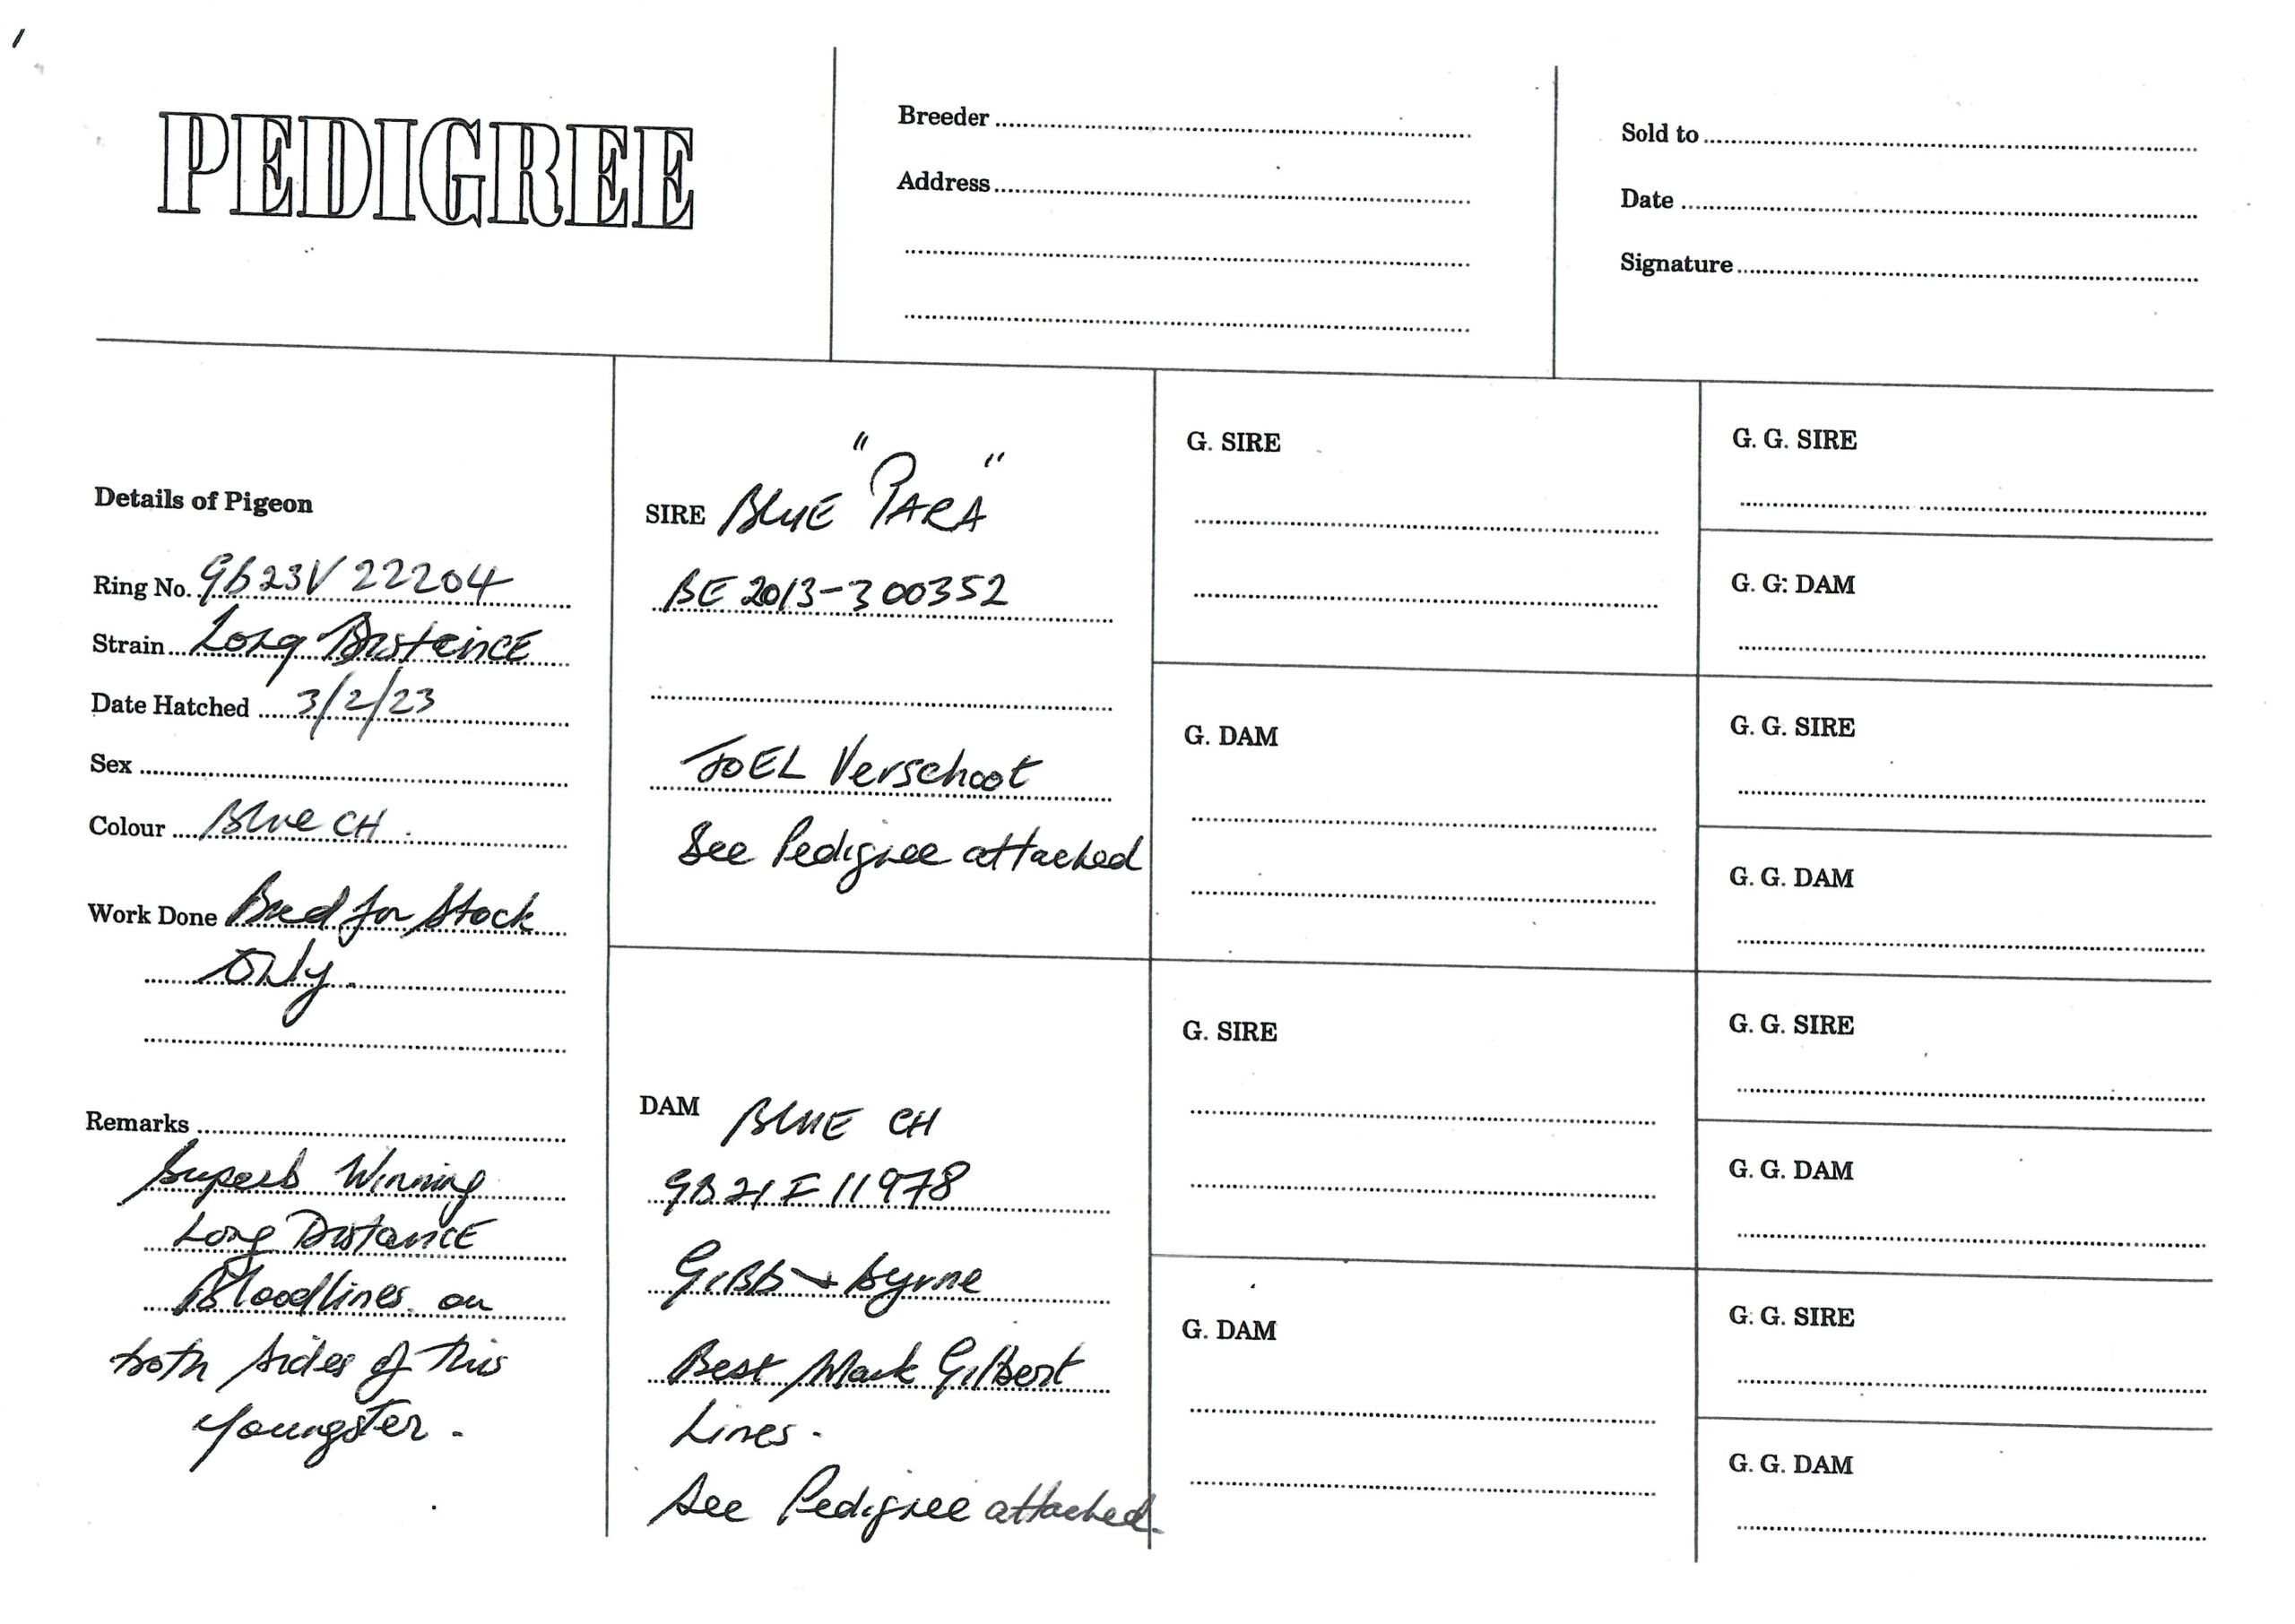 PEDIGREE
Breeder
Address
Sold to
Date
Signature
Details of Pigeon
Ring No. GB23V22204
Strain Long Distance
Date Hatched 3/2/23
Sex
Colour Blue CH.
Work Done Bred for Stock
Only.
Remarks
Superb Winning
Long Distance
Bloodlines on
both sides of this
Youngster.
SIRE BLUE "PARA"
BE 2013-300352
JOEL Verschoot
See Pedigree attached
DAM BLUE CH
GB21F11978
GIBB + Byrne
Best Mark Gilbert
Lines.
See Pedigree attached.
G. SIRE
G. DAM
G. SIRE
G. DAM
G. G. SIRE
G. G: DAM
G. G. SIRE
G. G. DAM
G. G. SIRE
G. G. DAM
G. G. SIRE
G. G. DAM